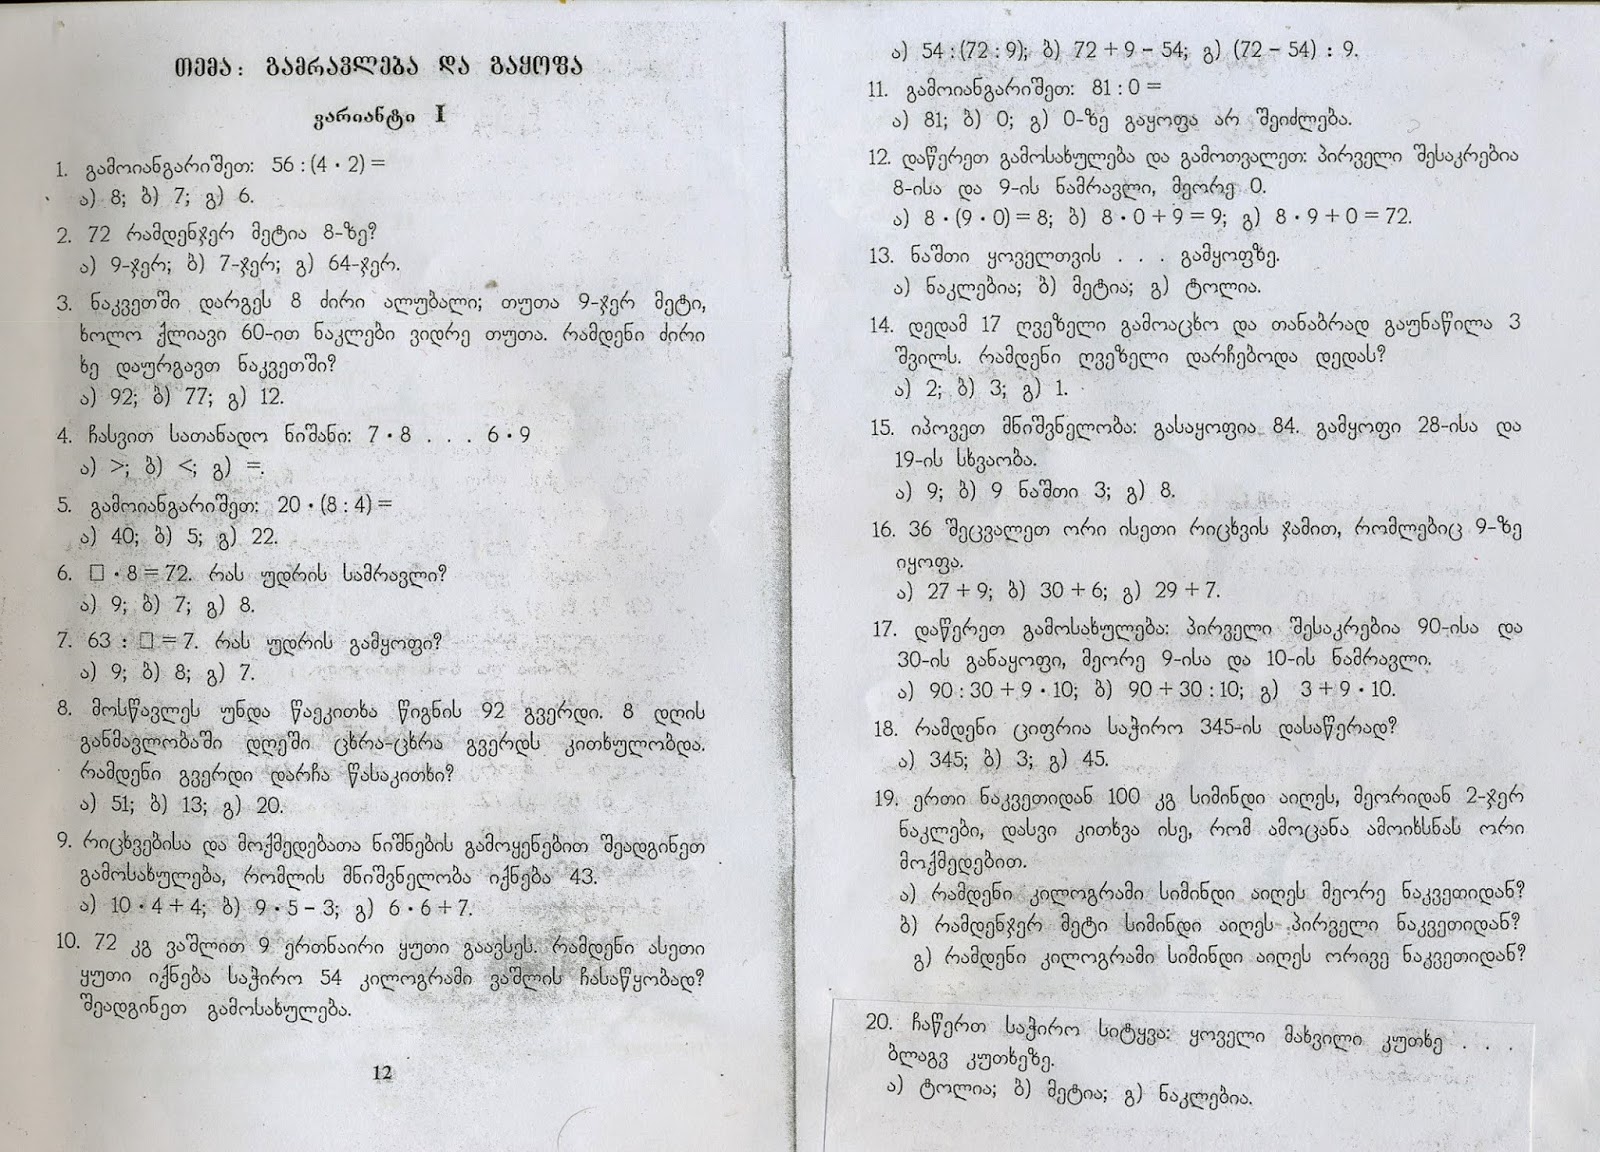 თემა: გამრავლება და გაყოფა
ვარიანტი I
1. გამოიანგარიშეთ: 56 : (4 · 2) =
ა) 8; ბ) 7; გ) 6.
2. 72 რამდენჯერ მეტია 8-ზე?
ა) 9-ჯერ; ბ) 7-ჯერ; გ) 64-ჯერ.
3. ნაკვეთში დარგეს 8 ძირი ალუბალი; თუთა 9-ჯერ მეტი,
ხოლო ქლიავი 60-ით ნაკლები ვიდრე თუთა. რამდენი ძირი
ხე დაურგავთ ნაკვეთში?
ა) 92; ბ) 77; გ) 12.
4. ჩასვით სათანადო ნიშანი: 7 · 8 . . . 6 · 9
ა) >; ბ) <; გ) =.
5. გამოიანგარიშეთ: 20 · (8 : 4) =
ა) 40; ბ) 5; გ) 22.
6. □ · 8 = 72. რას უდრის სამრავლი?
ა) 9; ბ) 7; გ) 8.
7. 63 : □ = 7. რას უდრის გამყოფი?
ა) 9; ბ) 8; გ) 7.
8. მოსწავლეს უნდა წაეკითხა წიგნის 92 გვერდი. 8 დღის
განმავლობაში დღეში ცხრა-ცხრა გვერდს კითხულობდა.
რამდენი გვერდი დარჩა წასაკითხი?
ა) 51; ბ) 13; გ) 20.
9. რიცხვებისა და მოქმედებათა ნიშნების გამოყენებით შეადგინეთ
გამოსახულება, რომლის მნიშვნელობა იქნება 43.
ა) 10 · 4 + 4; ბ) 9 · 5 – 3; გ) 6 · 6 + 7.
10. 72 კგ ვაშლით 9 ერთნაირი ყუთი გაავსეს. რამდენი ასეთი
ყუთი იქნება საჭირო 54 კილოგრამი ვაშლის ჩასაწყობად?
შეადგინეთ გამოსახულება.
12
ა) 54 : (72 : 9); ბ) 72 + 9 – 54; გ) (72 – 54) : 9.
11. გამოიანგარიშეთ: 81 : 0 =
ა) 81; ბ) 0; გ) 0-ზე გაყოფა არ შეიძლება.
12. დაწერეთ გამოსახულება და გამოთვალეთ: პირველი შესაკრებია
8-ისა და 9-ის ნამრავლი, მეორე 0.
ა) 8 · (9 · 0) = 8; ბ) 8 · 0 + 9 = 9; გ) 8 · 9 + 0 = 72.
13. ნაშთი ყოველთვის . . . გამყოფზე.
ა) ნაკლებია; ბ) მეტია; გ) ტოლია.
14. დედამ 17 ღვეზელი გამოაცხო და თანაბრად გაუნაწილა 3
შვილს. რამდენი ღვეზელი დარჩებოდა დედას?
ა) 2; ბ) 3; გ) 1.
15. იპოვეთ მნიშვნელობა: გასაყოფია 84. გამყოფი 28-ისა და
19-ის სხვაობა.
ა) 9; ბ) 9 ნაშთი 3; გ) 8.
16. 36 შეცვალეთ ორი ისეთი რიცხვის ჯამით, რომლებიც 9-ზე
იყოფა.
ა) 27 + 9; ბ) 30 + 6; გ) 29 + 7.
17. დაწერეთ გამოსახულება: პირველი შესაკრებია 90-ისა და
30-ის განაყოფი, მეორე 9-ისა და 10-ის ნამრავლი.
ა) 90 : 30 + 9 · 10; ბ) 90 + 30 : 10; გ) 3 + 9 · 10.
18. რამდენი ციფრია საჭირო 345-ის დასაწერად?
ა) 345; ბ) 3; გ) 45.
19. ერთი ნაკვეთიდან 100 კგ სიმინდი აიღეს, მეორიდან 2-ჯერ
ნაკლები, დასვი კითხვა ისე, რომ ამოცანა ამოიხსნას ორი
მოქმედებით.
ა) რამდენი კილოგრამი სიმინდი აიღეს მეორე ნაკვეთიდან?
ბ) რამდენჯერ მეტი სიმინდი აიღეს პირველი ნაკვეთიდან?
გ) რამდენი კილოგრამი სიმინდი აიღეს ორივე ნაკვეთიდან?
20. ჩაწერთ საჭირო სიტყვა: ყოველი მახვილი კუთხე . . .
ბლაგვ კუთხეზე.
ა) ტოლია; ბ) მეტია; გ) ნაკლებია.